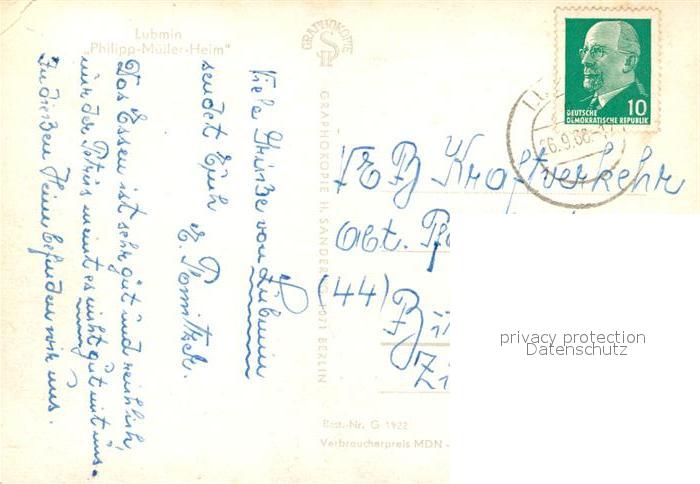 Lubmin
„Philipp-Müller-Heim"
Viele Grüße von Lubmin
sendet Euch
E. Pomitzek.
Das Essen ist sehr gut und reichlich,
nur der Petrus meint es nicht gut mit uns.
In diesen Heim befinden wir uns.
GRAPHOKOPIE
GRAPHOKOPIE H. SANDER KG 1071 BERLIN
DEUTSCHE
DEMOKRATISCHE REPUBLIK
10
26.9.66
VEB Kraftverkehr
Abt.
(44)
Best.-Nr. G 1922
Verbraucherpreis MDN -
privacy protection
Datenschutz